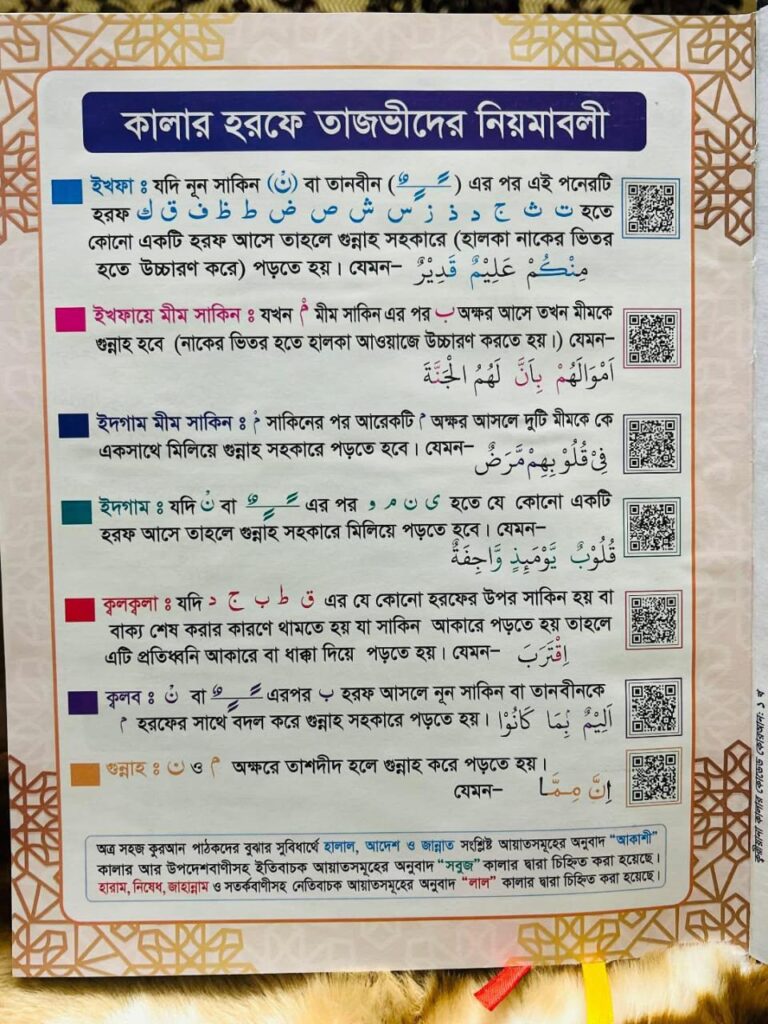 কালার হরফে তাজভীদের নিয়মাবলী
ইখফা : যদি নূন সাকিন (نْ) বা তানবীন (ـًـٍـٌ) এর পর এই পনেরটি
হরফ ت ث ج د ذ ز س ش ص ض ط ظ ف ق ك হতে
কোনো একটি হরফ আসে তাহলে গুন্নাহ সহকারে (হালকা নাকের ভিতর
হতে উচ্চারণ করে) পড়তে হয়। যেমন- مِنْكُمْ عَلِيْمٌ قَدِيْرٌ
ইখফায়ে মীম সাকিন : যখন مْ মীম সাকিন এর পর ب অক্ষর আসে তখন মীমকে
গুন্নাহ হবে (নাকের ভিতর হতে হালকা আওয়াজে উচ্চারণ করতে হয়।) যেমন-
اَمْوَالَهُمْ بِاَنَّ لَهُمُ الْجَنَّةَ
ইদগাম মীম সাকিন : مْ সাকিনের পর আরেকটি م অক্ষর আসলে দুটি মীমকে কে
একসাথে মিলিয়ে গুন্নাহ সহকারে পড়তে হবে। যেমন- فِىْ قُلُوْبِهِمْ مَّرَضٌ
ইদগাম : যদি نْ বা ـًـٍـٌ এর পর ى ن م و হতে যে কোনো একটি
হরফ আসে তাহলে গুন্নাহ সহকারে মিলিয়ে পড়তে হবে। যেমন-
قُلُوْبٌ يَّوْمَئِذٍ وَّاجِفَةٌ
ক্বলক্বলা : যদি ق ط ب ج د এর যে কোনো হরফের উপর সাকিন হয় বা
বাক্য শেষ করার কারণে থামতে হয় যা সাকিন আকারে পড়তে হয় তাহলে
এটি প্রতিধ্বনি আকারে বা ধাক্কা দিয়ে পড়তে হয়। যেমন- اِقْتَرَبَ
ক্বলব : نْ বা ـًـٍـٌ এরপর ب হরফ আসলে নূন সাকিন বা তানবীনকে
م হরফের সাথে বদল করে গুন্নাহ সহকারে পড়তে হয়। اَلِيْمٌ بِمَا كَانُوْا
গুন্নাহ : ن ও م অক্ষরে তাশদীদ হলে গুন্নাহ করে পড়তে হয়।
যেমন- اِنَّ مِمَّا
অত্র সহজ কুরআন পাঠকদের বুঝার সুবিধার্থে হালাল, আদেশ ও জান্নাত সংশ্লিষ্ট আয়াতসমূহের অনুবাদ “আকাশী”
কালার আর উপদেশবাণীসহ ইতিবাচক আয়াতসমূহের অনুবাদ “সবুজ” কালার দ্বারা চিহ্নিত করা হয়েছে।
হারাম, নিষেধ, জাহান্নাম ও সতর্কবাণীসহ নেতিবাচক আয়াতসমূহের অনুবাদ “লাল” কালার দ্বারা চিহ্নিত করা হয়েছে।